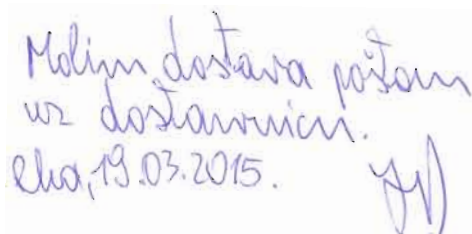 Molim dostava poštom
uz dostavnicu.
19.03.2015.